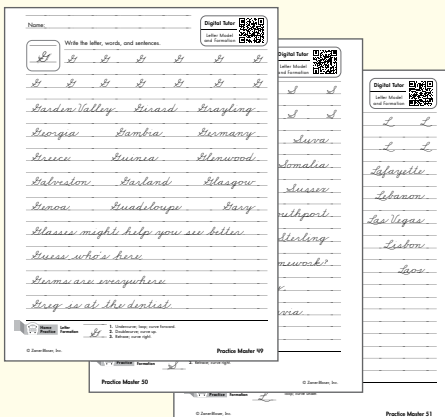 Name:
Digital Tutor
Letter Model
and Formation
Write the letter, words, and sentences.
G G G G G G G
G G G G G G G
Garden Valley Gerard Grayling
Georgia Gambia Germany
Greece Guinea Glenwood
Galveston Garland Glasgow
Genoa Guadeloupe Gary
Glasses might help you see better.
Guess who's here.
Germs are everywhere.
Greg is at the dentist.
Home
Practice
Letter
Formation
G
1. Undercurve, loop; curve forward.
2. Doublecurve, curve up.
3. Retrace; curve right.
© Zaner-Bloser, Inc.
Practice Master 49
Digital Tutor
Letter Model
and Formation
S S
S S
Suva
Somalia
Sussex
Southport
Sterling
homework?
Practice
Formation
3. Retrace; curve right.
Practice Master 50
© Zaner-Bloser, Inc.
Digital Tutor
Letter Model
and Formation
L L
L L
Lafayette
Lebanon
Las Vegas
Lisbon
Laos
Practice
Formation
L
© Zaner-Bloser, Inc.
Practice Master 51